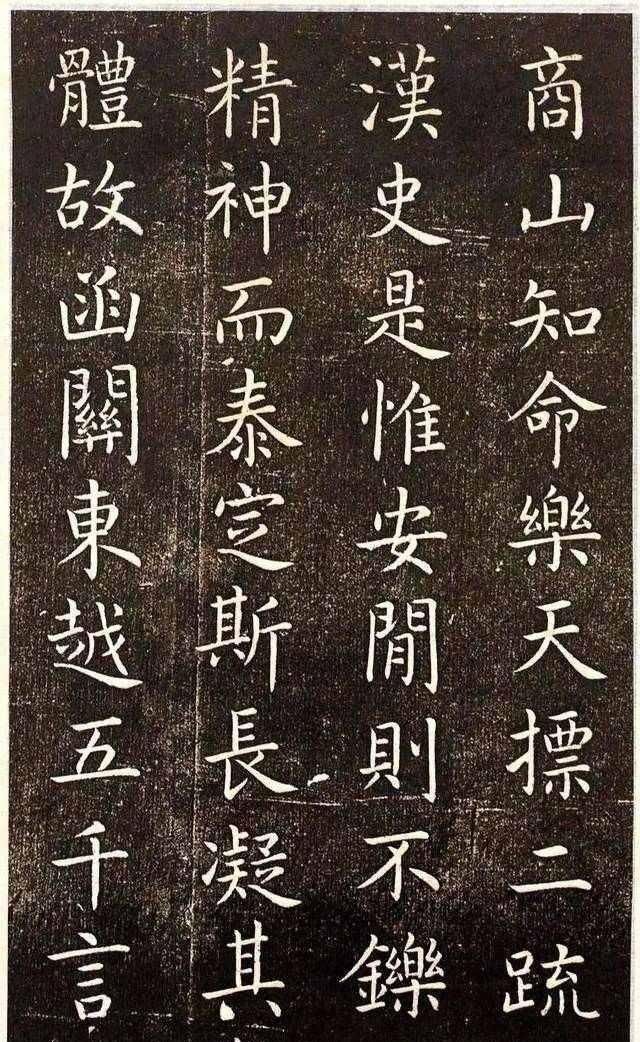 商山知命樂天摽二疏
漢史是惟安閒則不鑠
精神而泰定斯長凝其
體故函關東越五千言